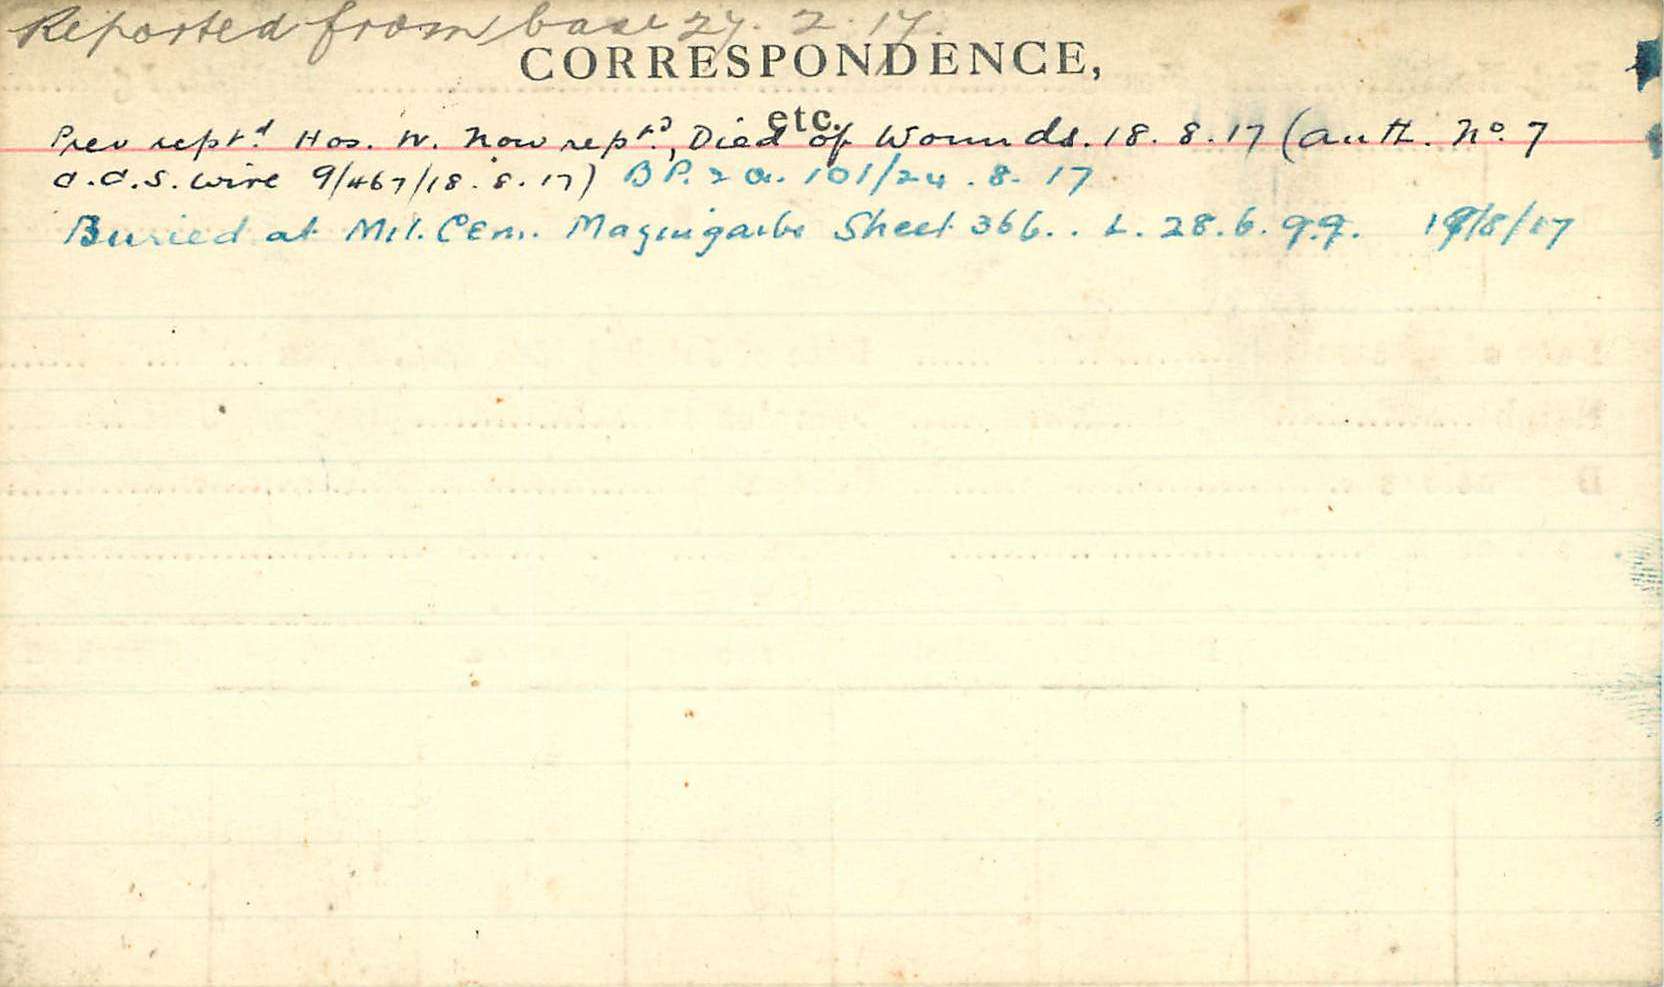 Reported from base 27. 2. 17.
CORRESPONDENCE,
etc.
Prev rept.d Hos. W. Now rept.d, Died of Wounds. 18. 8. 17 (auth. No. 7
C.C.S. wire 9/467/18. 8. 17) B.P. 2 a. 101/24. 8. 17
Buried at Mil. Cem. Mazingarbe Sheet 36b.. L. 28. b. 9.9. 19/8/17